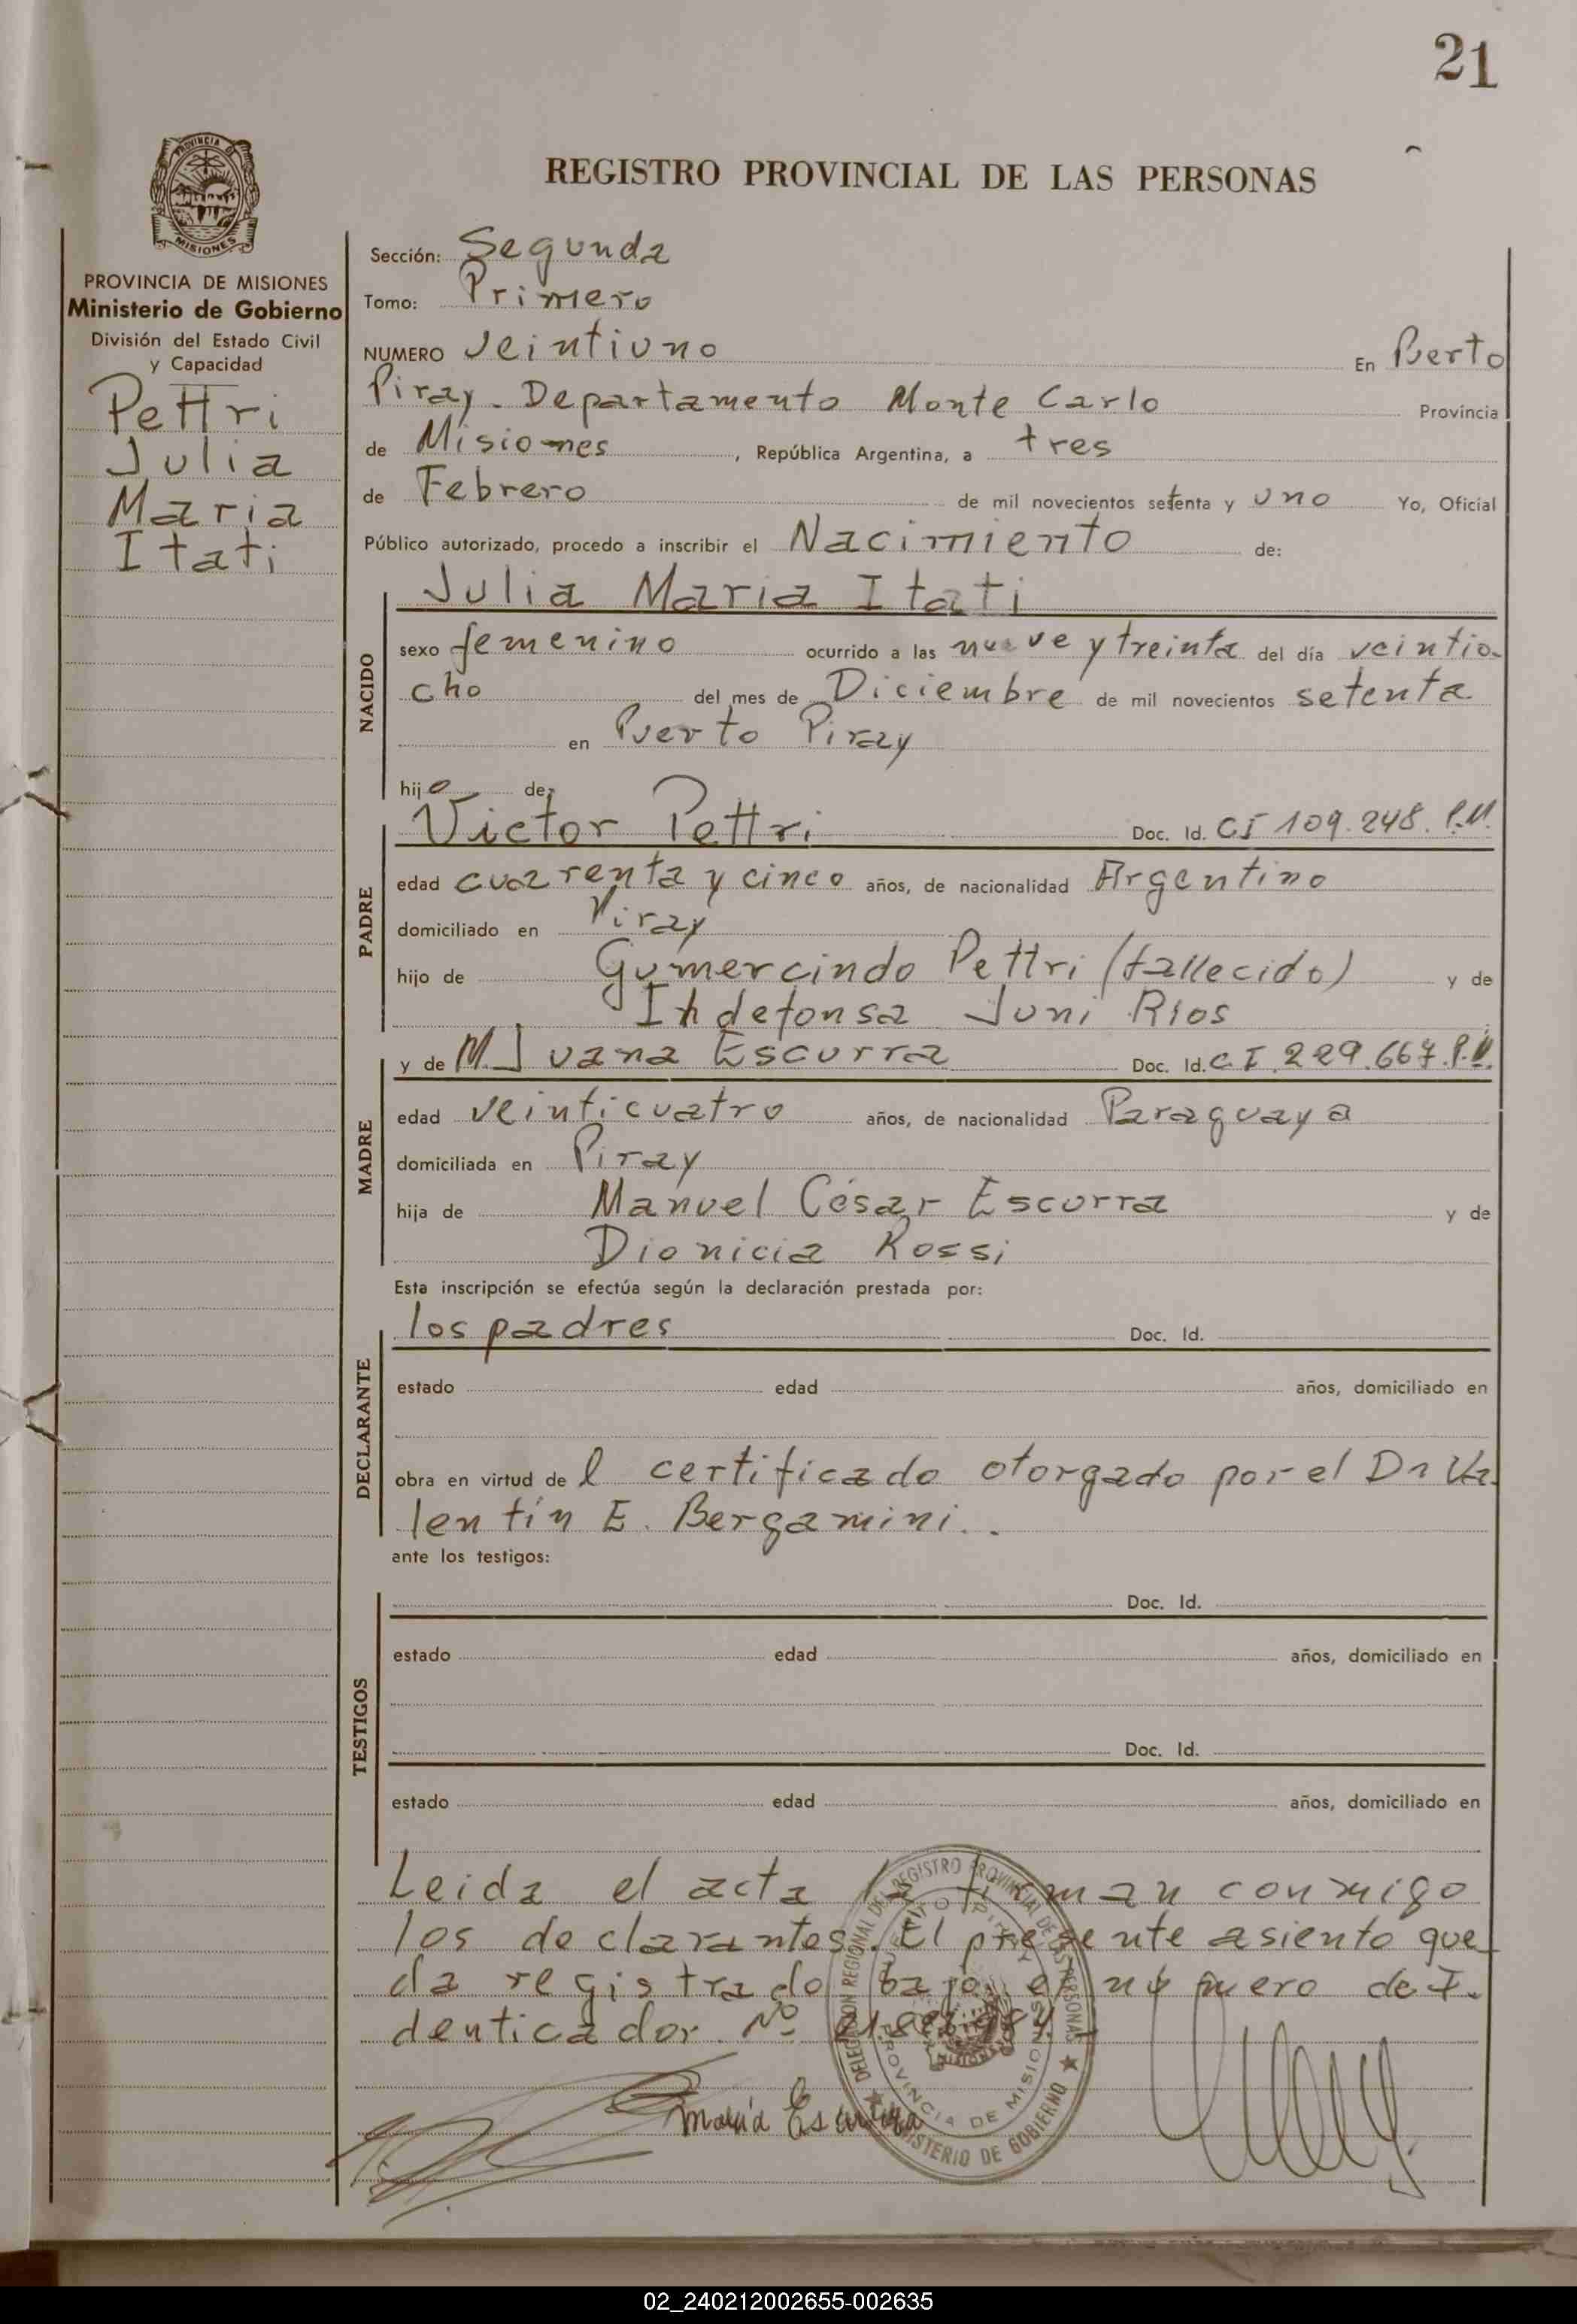 21
REGISTRO PROVINCIAL DE LAS PERSONAS
PROVINCIA DE MISIONES
Ministerio de Gobierno
División del Estado Civil
y Capacidad
Pettri
Julia
Maria
Itati
Sección: Segunda
Tomo: Primero
NUMERO Veintiuno En Puerto
Piray. Departamento Monte Carlo Provincia
de Misiones, República Argentina, a tres
de Febrero de mil novecientos setenta y uno Yo, Oficial
Público autorizado, procedo a inscribir el Nacimiento de:
NACIDO
Julia Maria Itati
sexo femenino ocurrido a las nueve y treinta del día veintio-
cho del mes de Diciembre de mil novecientos setenta
en Puerto Piray
hij de:
PADRE
Victor Pettri Doc. Id. CI 109.248. P.M.
edad cuarenta y cinco años, de nacionalidad Argentino
domiciliado en Piray
hijo de Gumercindo Pettri (fallecido) y de
Juni Rios
MADRE
y de M. Juana Escurra Doc. Id. C.I. 229.667. P.M.
edad veinticuatro años, de nacionalidad Paraguaya
domiciliada en Piray
hija de Manuel César Escurra y de
Dionicia Rossi
Esta inscripción se efectúa según la declaración prestada por:
DECLARANTE
los padres Doc. Id.
estado edad años, domiciliado en
obra en virtud del certificado otorgado por el Dr Va
lentín E. Bergamini..
ante los testigos:
TESTIGOS
Doc. Id.
estado edad años, domiciliado en
Doc. Id.
estado edad años, domiciliado en
Leida el acta la firman conmigo
los declarantes. El presente asiento que-
da registrado bajo el número de I-
denticador. Nº
DELEGACION REGIONAL DEL REGISTRO PROVINCIAL DE LAS PERSONAS
PUERTO PIRAY
PROVINCIA DE MISIONES
MINISTERIO DE GOBIERNO
María Escurra
02_240212002655-002635